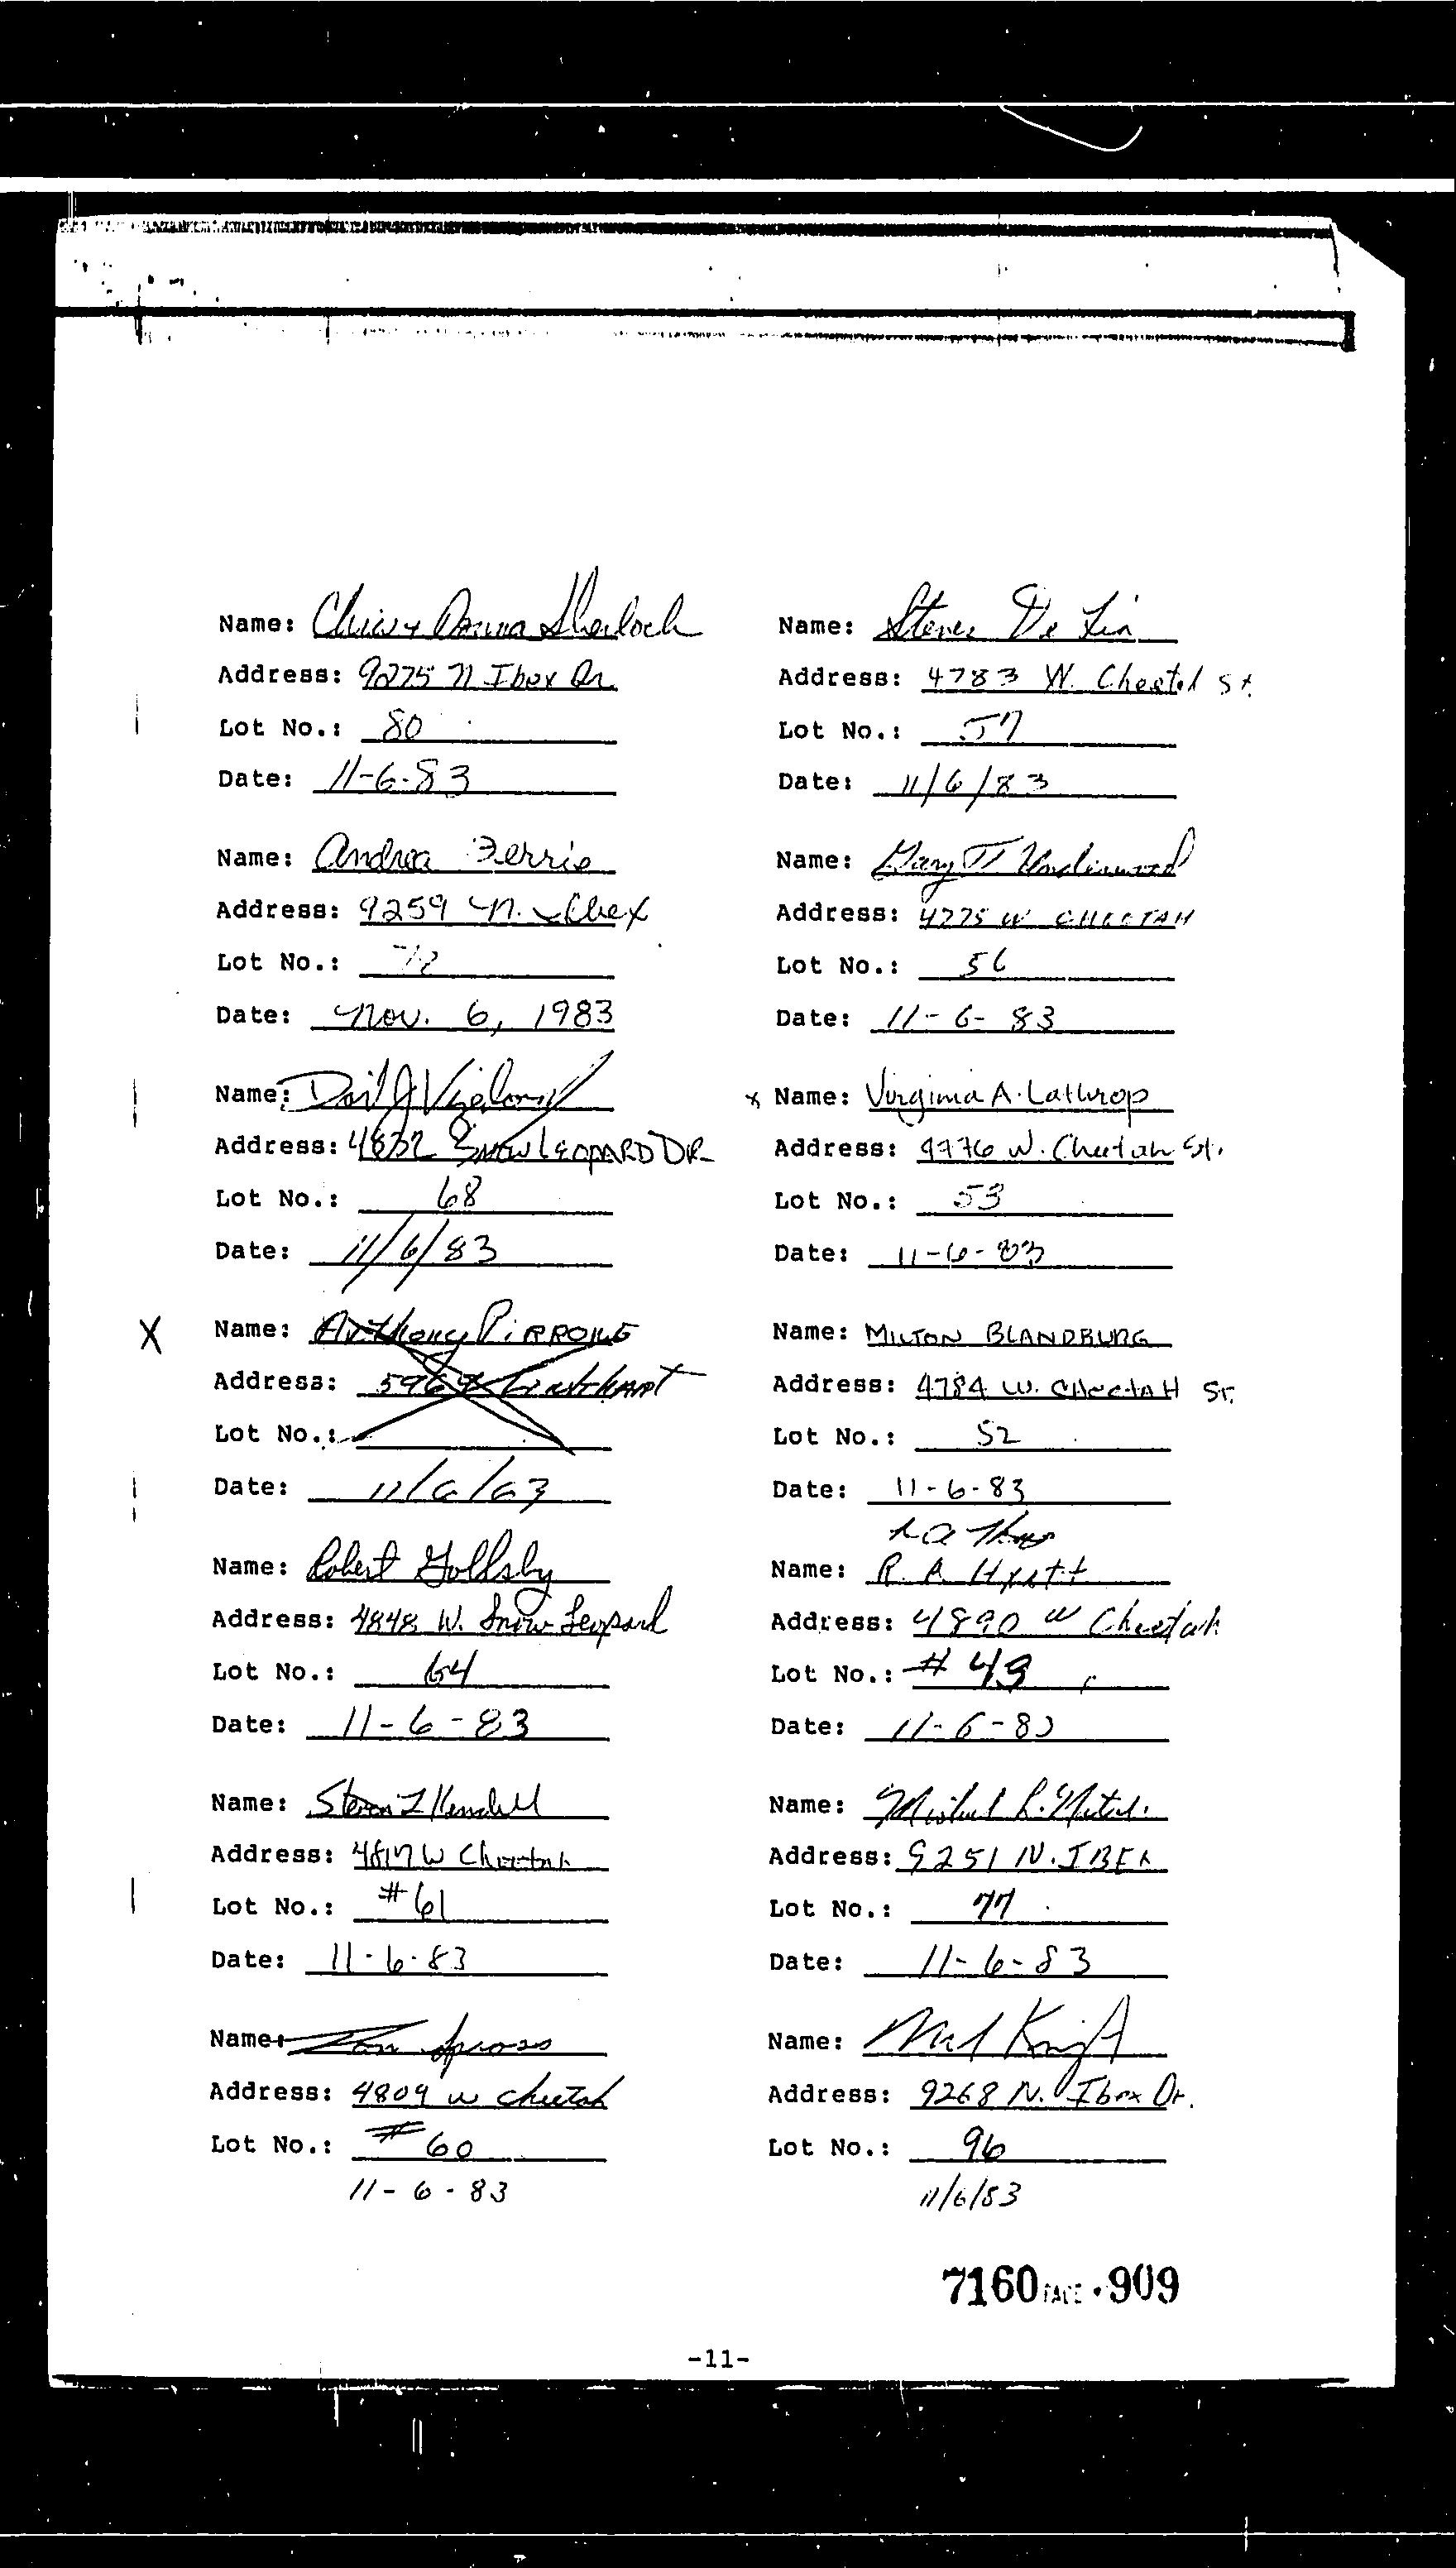 Name: Chris & Donna Sherlock
Address: 9275 N Ibex Dr
Lot No.: 80
Date: 11-6-83
Name: Andrea Ferris
Address: 9259 N. Ibex
Lot No.:
Date: Nov. 6, 1983
Name:
Address: 4832 SNOW LEOPARD DR
Lot No.: 68
Date: 11/6/83
X Name: Anthony PIRRONE
Address:
Lot No.:
Date: 11/6/83
Name: Robert Gollsby
Address: 4848 W. Snow Leopard
Lot No.: 64
Date: 11-6-83
Name: Steven Kendell
Address: 4817 W Cheetah
Lot No.: #61
Date: 11-6-83
Name:
Address: 4809 W Cheetah
Lot No.: #60
11-6-83
Name: Steve De
Address: 4783 W. Cheetah St.
Lot No.: 57
Date: 11/6/83
Name: Gary Underwood
Address: 4775 W CHEETAH
Lot No.: 56
Date: 11-6-83
x Name: Virginia A. Lathrop
Address: 4776 W. Cheetah St.
Lot No.: 53
Date: 11-6-83
Name: MILTON BLANDBURG
Address: 4784 W. CHEETAH St.
Lot No.: 52
Date: 11-6-83
Name: R. A. Hyatt
Address: 4890 W Cheetah
Lot No.: # 49
Date: 11-6-83
Name:
Address: 9251 N. IBEX
Lot No.: 77
Date: 11-6-83
Name: Knight
Address: 9268 N. Ibex Dr.
Lot No.: 96
11/6/83
7160 PAGE 909
-11-